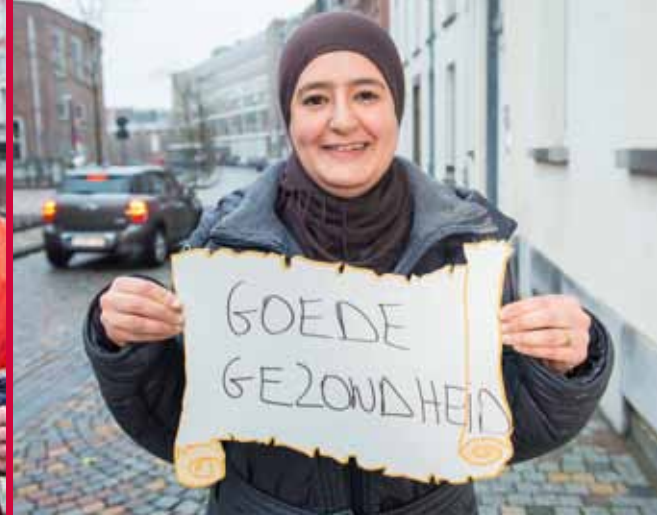 GOEDE
GEZONDHEID